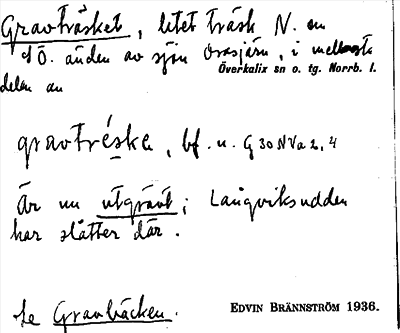 Gravträsket, litet träsk N. om
SÖ. änden av sjön Orasjärv, i mellersta
Överkalix sn o. tg. Norrb. l.
delen av
gravtréske, bf. u. G 30 NVa 2, 4
Är nu utgrävt; Långviksudden
har slåtter där.
Se Gravbäcken.
EDVIN BRÄNNSTRÖM 1936.